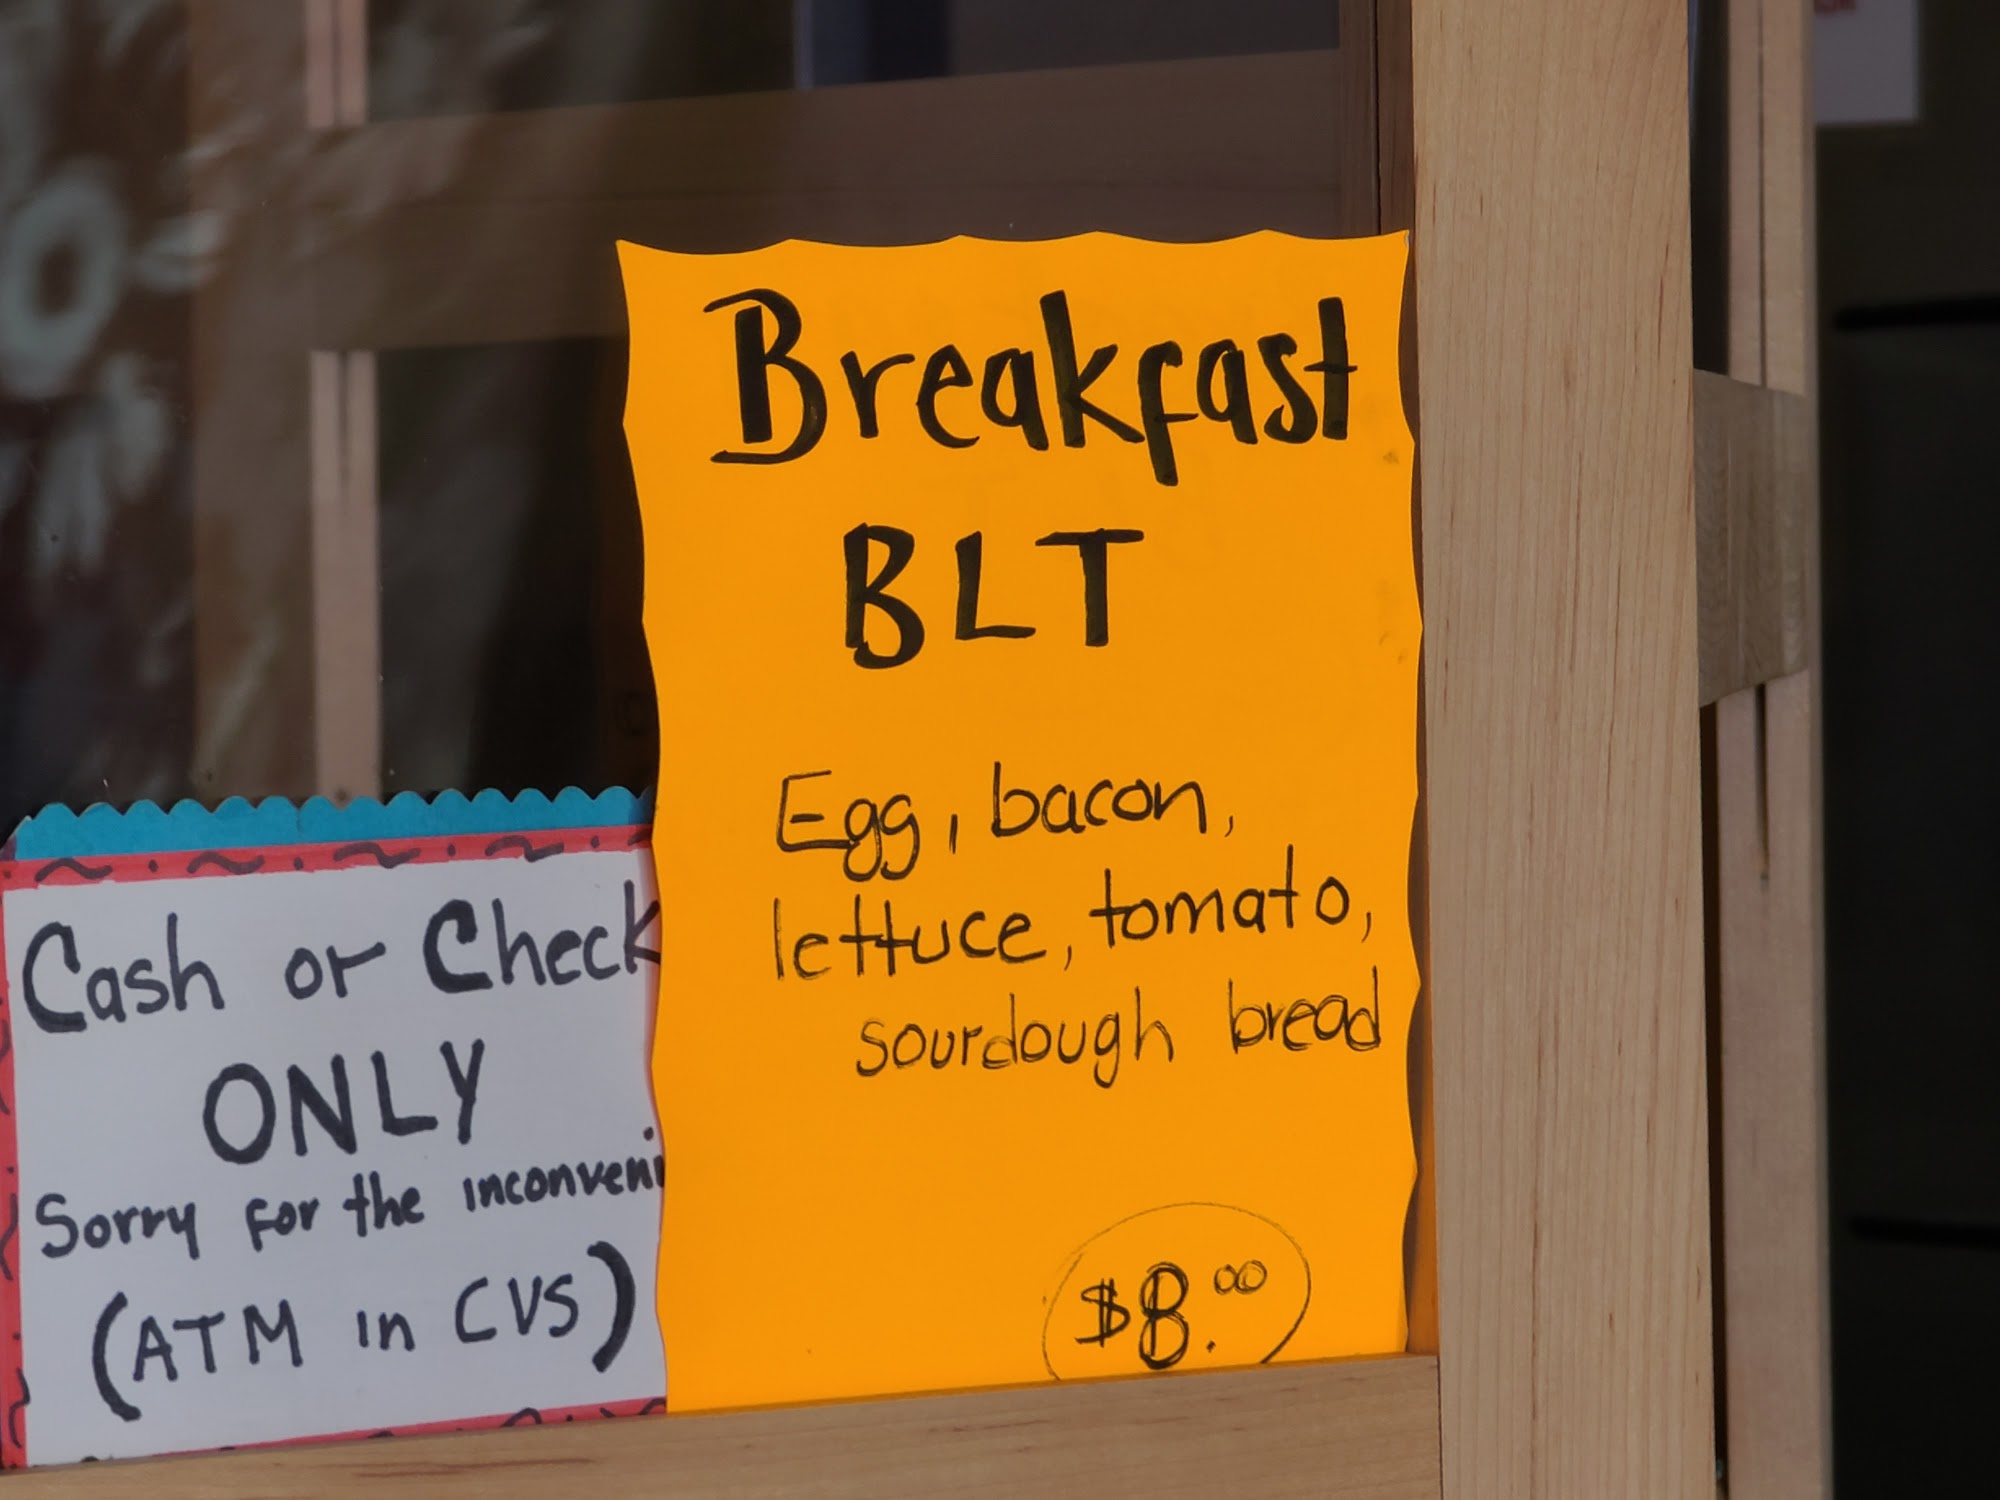 Breakfast
BLT
Egg, bacon,
lettuce, tomato,
sourdough bread
$8.00
Cash or Check
ONLY
Sorry for the inconveni
(ATM in CVS)